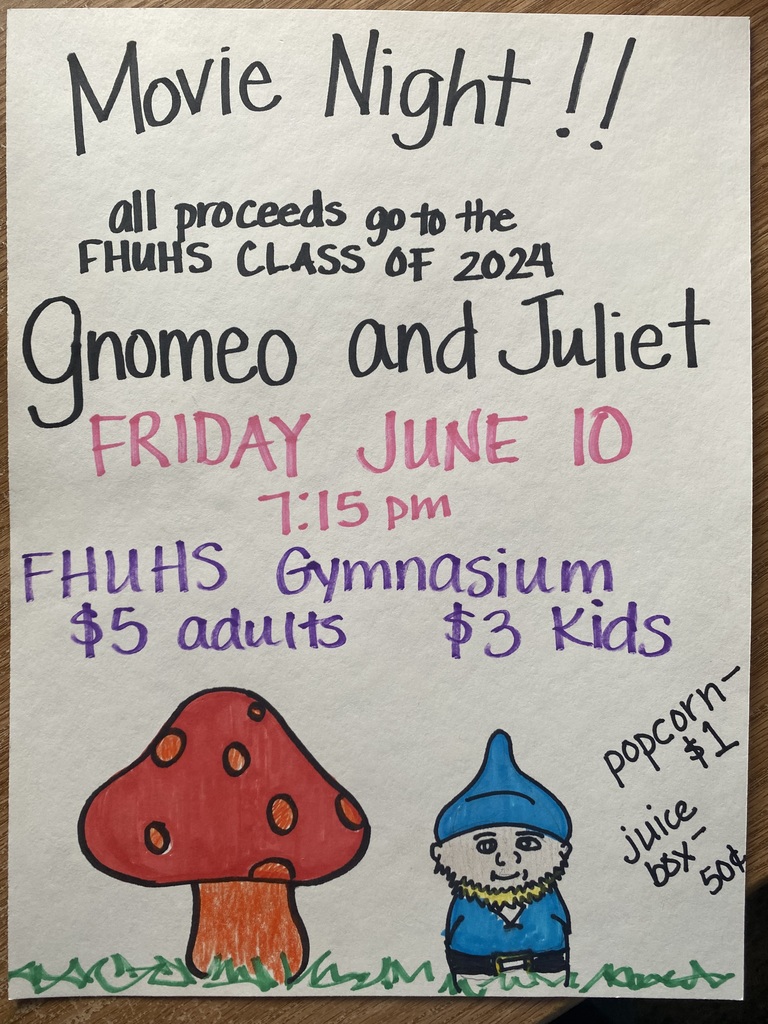 Movie Night!!
all proceeds go to the
FHUHS CLASS OF 2024
Gnomeo and Juliet
FRIDAY JUNE 10
7:15 pm
FHUHS Gymnasium
$5 adults $3 Kids
popcorn-
$1
juice
box-
50¢